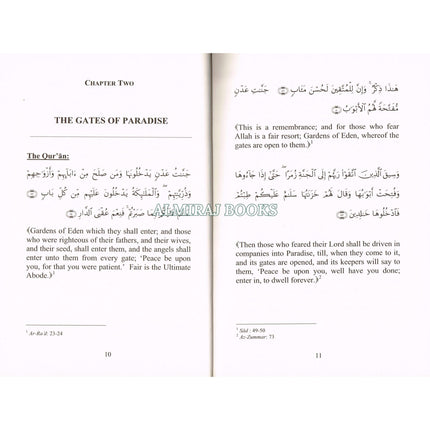 CHAPTER TWO
THE GATES OF PARADISE
The Qur'ân:
جَنَّٰتُ عَدْنٍ يَدْخُلُونَهَا وَمَن صَلَحَ مِنْ ءَابَآئِهِمْ وَأَزْوَٰجِهِمْ
وَذُرِّيَّٰتِهِمْ ۖ وَٱلْمَلَٰٓئِكَةُ يَدْخُلُونَ عَلَيْهِم مِّن كُلِّ بَابٍ
سَلَٰمٌ عَلَيْكُم بِمَا صَبَرْتُمْ ۚ فَنِعْمَ عُقْبَى ٱلدَّارِ
﴾Gardens of Eden which they shall enter; and those
who were righteous of their fathers, and their wives,
and their seed, shall enter them, and the angels shall
enter unto them from every gate; 'Peace be upon
you, for that you were patient.' Fair is the Ultimate
Abode.﴿1
1 Ar-Ra'd: 23-24
10
هَٰذَا ذِكْرٌ ۚ وَإِنَّ لِلْمُتَّقِينَ لَحُسْنَ مَـَٔابٍ جَنَّٰتِ عَدْنٍ
مُّفَتَّحَةً لَّهُمُ ٱلْأَبْوَٰبُ
﴾This is a remembrance; and for those who fear
Allah is a fair resort; Gardens of Eden, whereof the
gates are open to them.﴿1
وَسِيقَ ٱلَّذِينَ ٱتَّقَوْا۟ رَبَّهُمْ إِلَى ٱلْجَنَّةِ زُمَرًا ۖ حَتَّىٰٓ إِذَا جَآءُوهَا
وَفُتِحَتْ أَبْوَٰبُهَا وَقَالَ لَهُمْ خَزَنَتُهَا سَلَٰمٌ عَلَيْكُمْ طِبْتُمْ
فَٱدْخُلُوهَا خَٰلِدِينَ
﴾Then those who feared their Lord shall be driven in
companies into Paradise, till, when they come to it,
and its gates are opened, and its keepers will say to
them, 'Peace be upon you, well have you done;
enter in, to dwell forever.﴿2
1 Sâd : 49-50.
2 Az-Zummar: 73
11
ALMIRAJ BOOKS